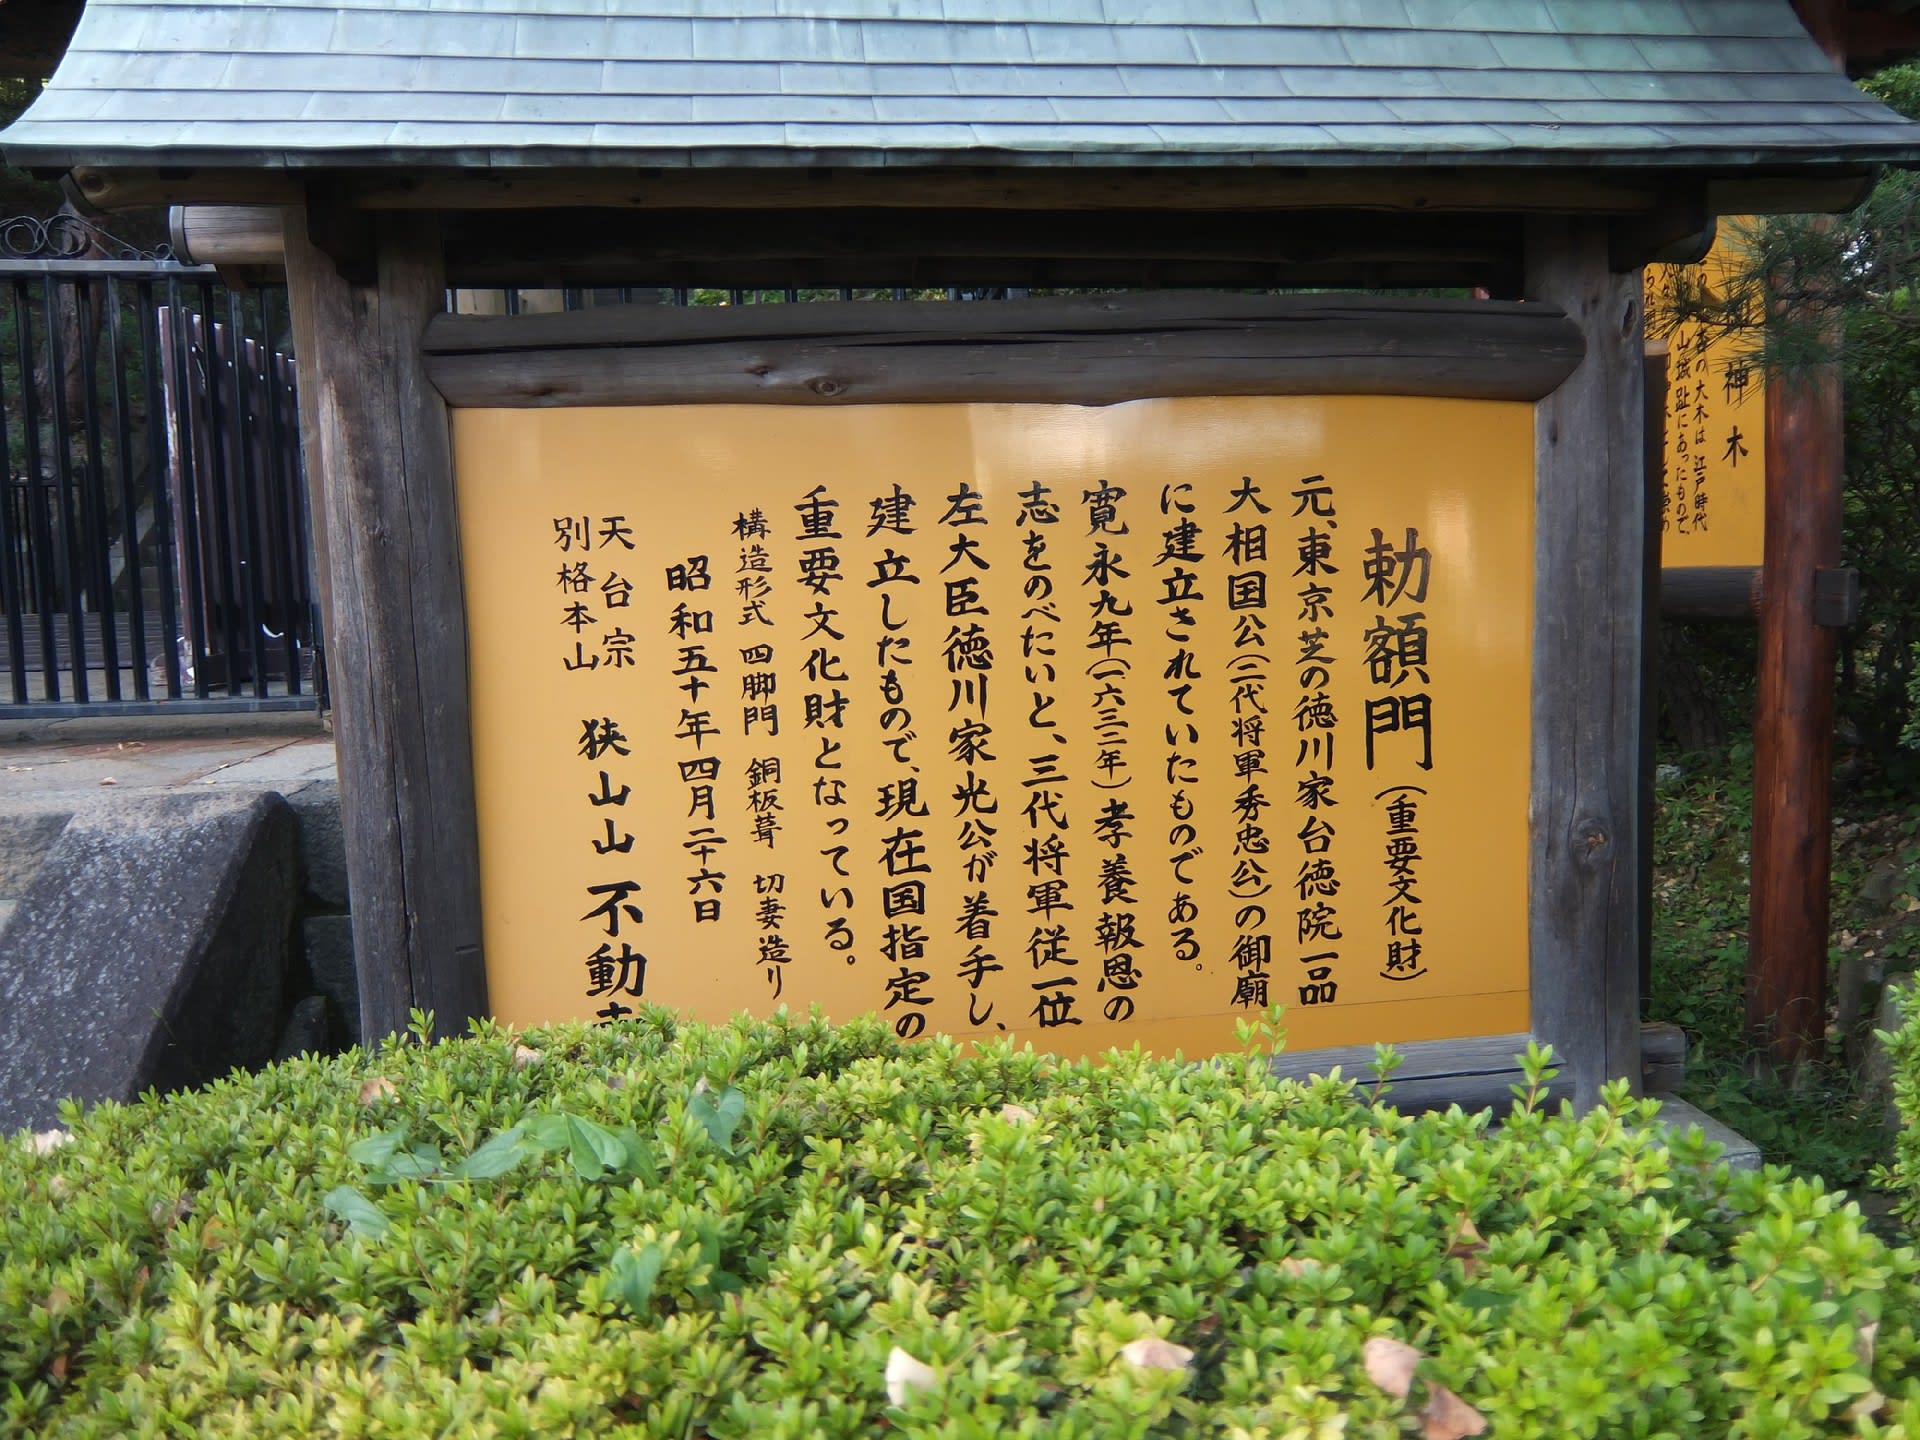 勅額門(重要文化財)
元、東京芝の徳川家台徳院一品
大相国公(二代将軍秀忠公)の御廟
に建立されていたものである。
寛永九年(一六三二年)孝養報恩の
志をのべたいと、三代将軍従一位
左大臣徳川家光公が着手し、
建立したもので、現在国指定の
重要文化財となっている。
構造形式 四脚門 銅板葺 切妻造り
昭和五十年四月二十六日
天台宗
別格本山
狭山山不動寺
神木
の大木は江戸時代
山城趾にあったもので、